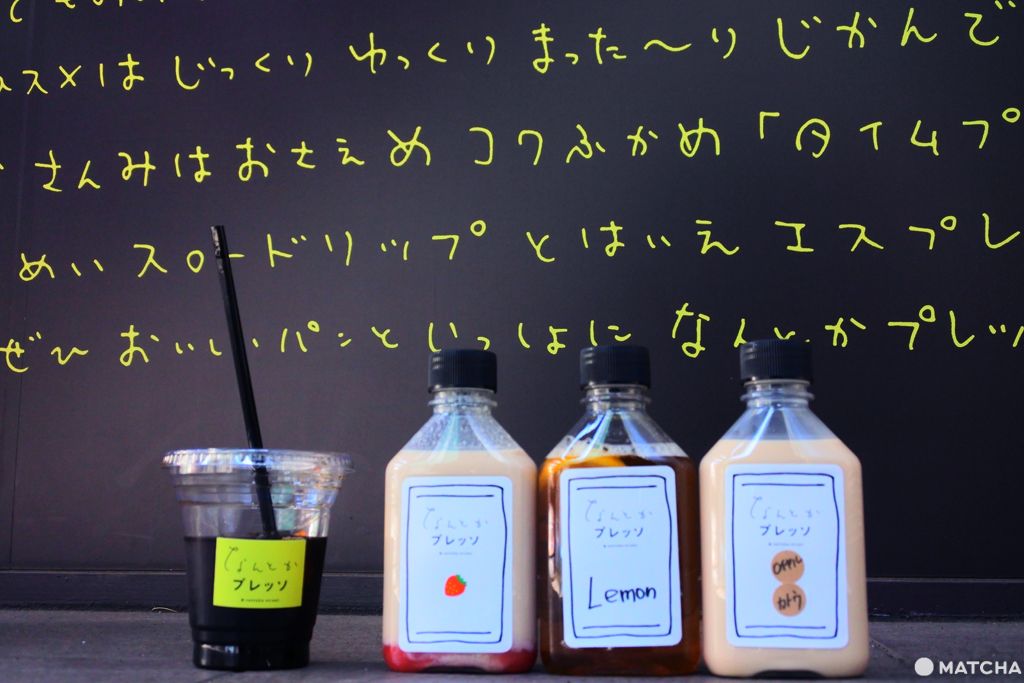 スメは じっくり ゆっくり まった〜り じかんで
さんみは おさえめ コクふかめ 「タイムプ
めい スロードリップ とはいえ エスプレ
ぜひ おいしいパンと いっしょに なんとかプレッ
なんとか
プレッソ
なんとか
プレッソ
なんとか
プレッソ
Lemon
なんとか
プレッソ
カトウ
MATCHA